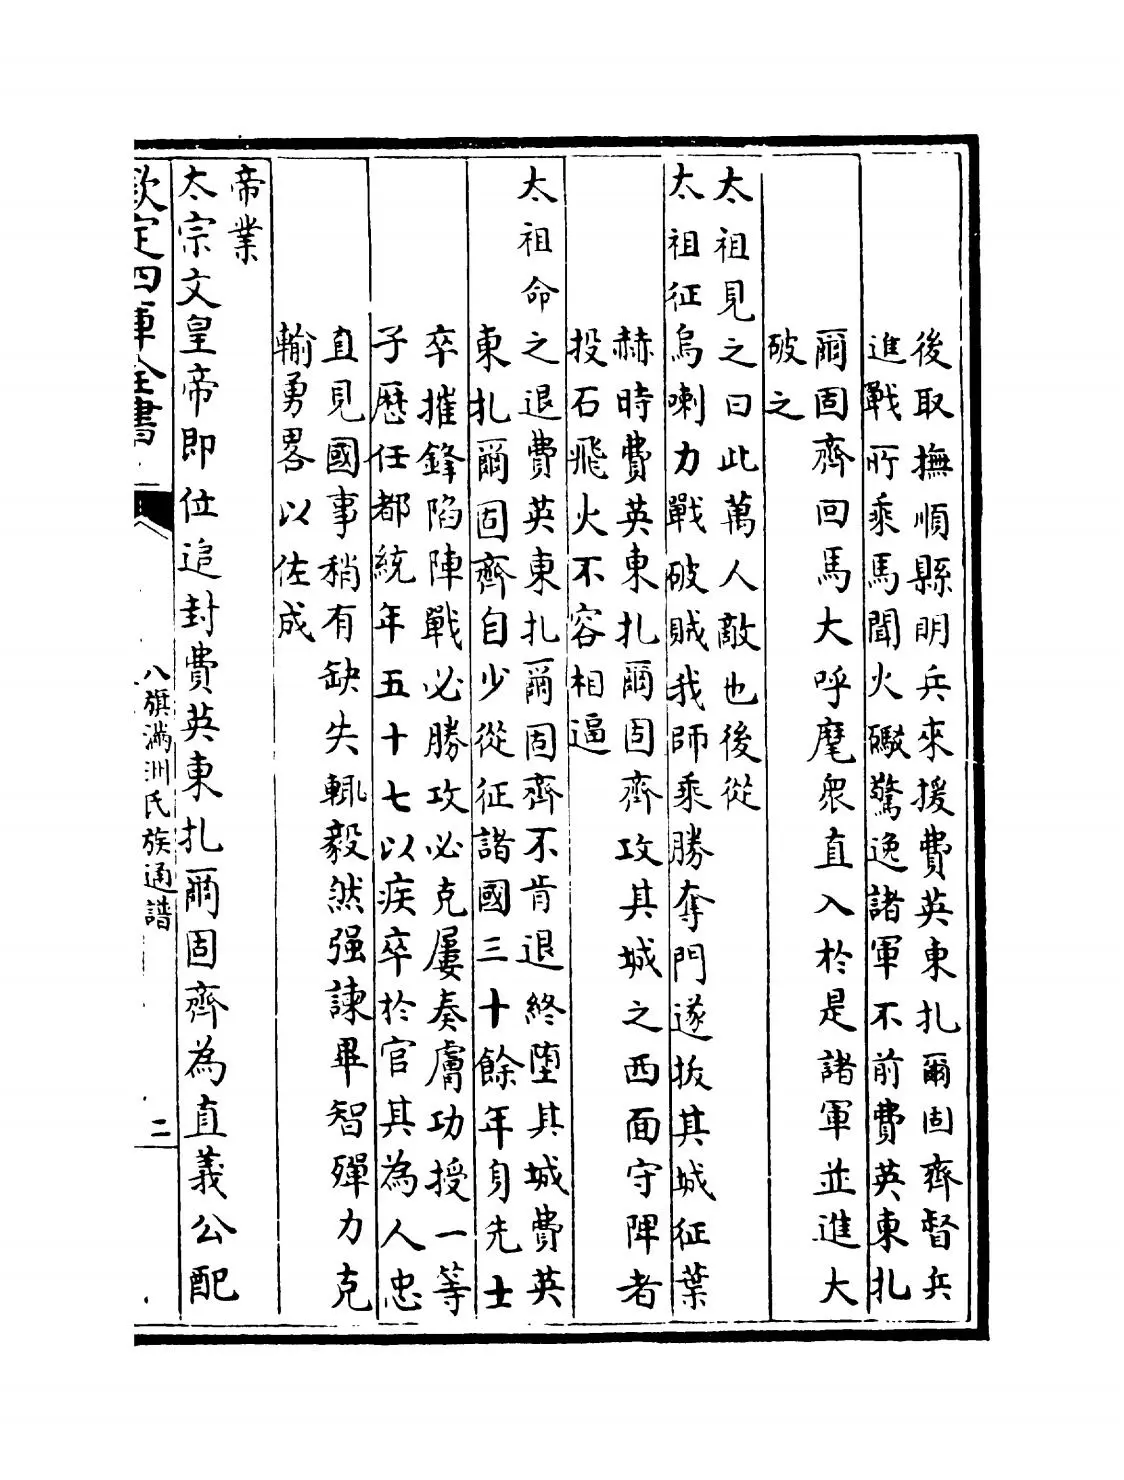 後取撫順縣明兵來援費英東扎爾固齊督兵
進戰所乘馬聞火礮驚逸諸軍不前費英東扎
爾固齊回馬大呼麾衆直入於是諸軍並進大
破之
太祖見之曰此萬人敵也後從
太祖征烏喇力戰破賊我師乘勝奪門遂拔其城征葉
赫時費英東扎爾固齊攻其城之西面守陴者
投石飛火不容相逼
太祖命之退費英東扎爾固齊不肯退終墮其城費英
東扎爾固齊自少從征諸國三十餘年身先士
卒摧鋒陷陣戰必勝攻必克屢奏膚功授一等
子歷任都統年五十七以疾卒於官其為人忠
直見國事稍有缺失輒毅然强諫畢智殫力克
輸勇畧以佐成
帝業
太宗文皇帝即位追封費英東扎爾固齊為直義公配
欽定四庫全書
八旗滿洲氏族通譜
二